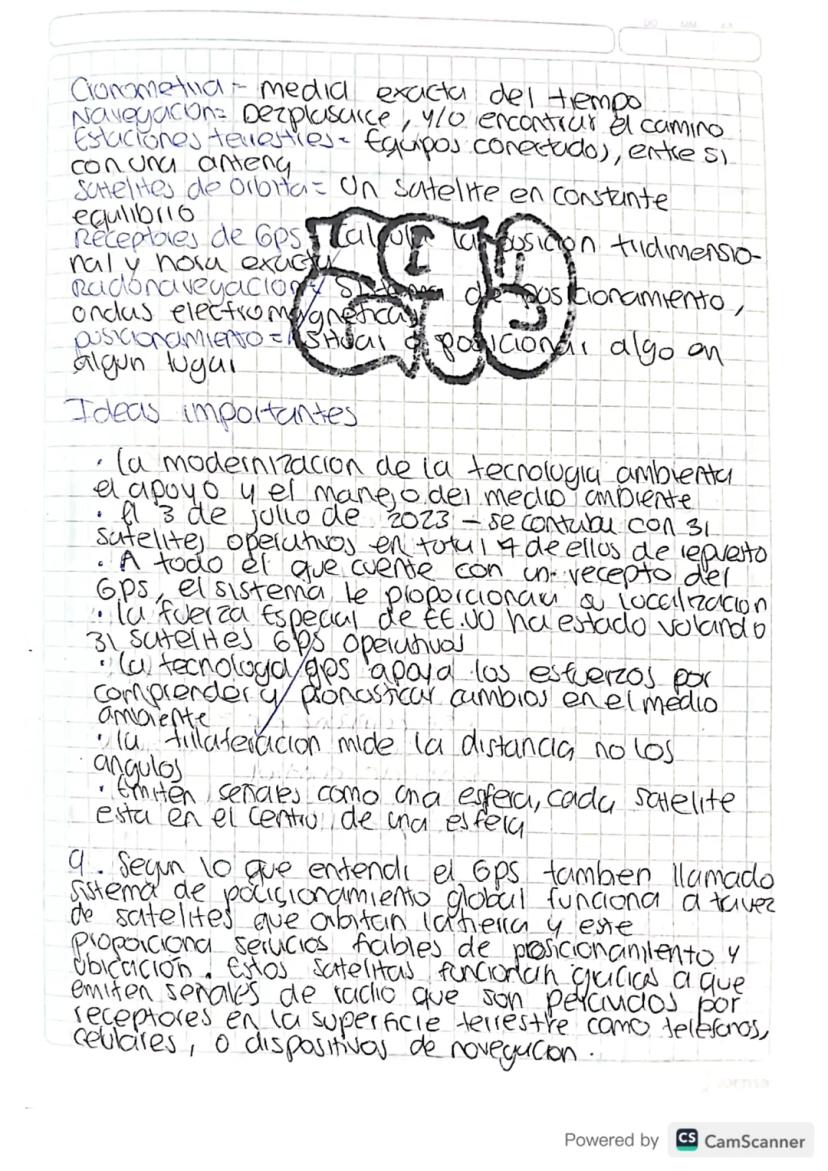 Cronometria - media exacta del tiempo
Navegacion= Dezplasarce, y/o encontrar el camino
Estaciones terrestres= Equipos conectados, entre si
con una antena
Satelites de orbita= Un satelite en constante
equlibrio
Receptores de GPS Calcula la posicion tridimensio-
nal y hora exacta
Radionavegacion= Sistema de posicionamiento,
ondas electromagneticas
posicionamiento = Situar o posicionar algo en
algun lugar
Ideas importantes
· la modernizacion de la tecnologia ambienta
el apoyo y el manejo del medio ambiente
· El 3 de julio de 2023 - se contaba con 31
satelites operativos en total 4 de ellos de repuesto
· A todo el que cuente con un recepto del
GPS, el sistema le proporcionara su localizacion
· la fuerza Especial de EE.UU ha estado volando
31 satelites GPS operativos
· la tecnologa gps apoya los esfuerzos por
comprender y pronosticar cambios en el medio
ambiente
· la trilateracion mide la distancia, no los
angulos
· Emiten señales como una esfera, cada satelite
esta en el centro de una esfera
9. Segun lo que entendi el GPS tambien llamado
sistema de posicionamiento global funciona a travez
de satelites que orbitan la tierra y este
proporciona servicios fiables de posicionamiento y
ubicación. Estos satelitas funcionan gracias a que
emiten señales de radio que son percividos por
receptores en la superficie terrestre como telefonos,
celulares, o dispositivos de navegacion.
Powered by CS CamScanner